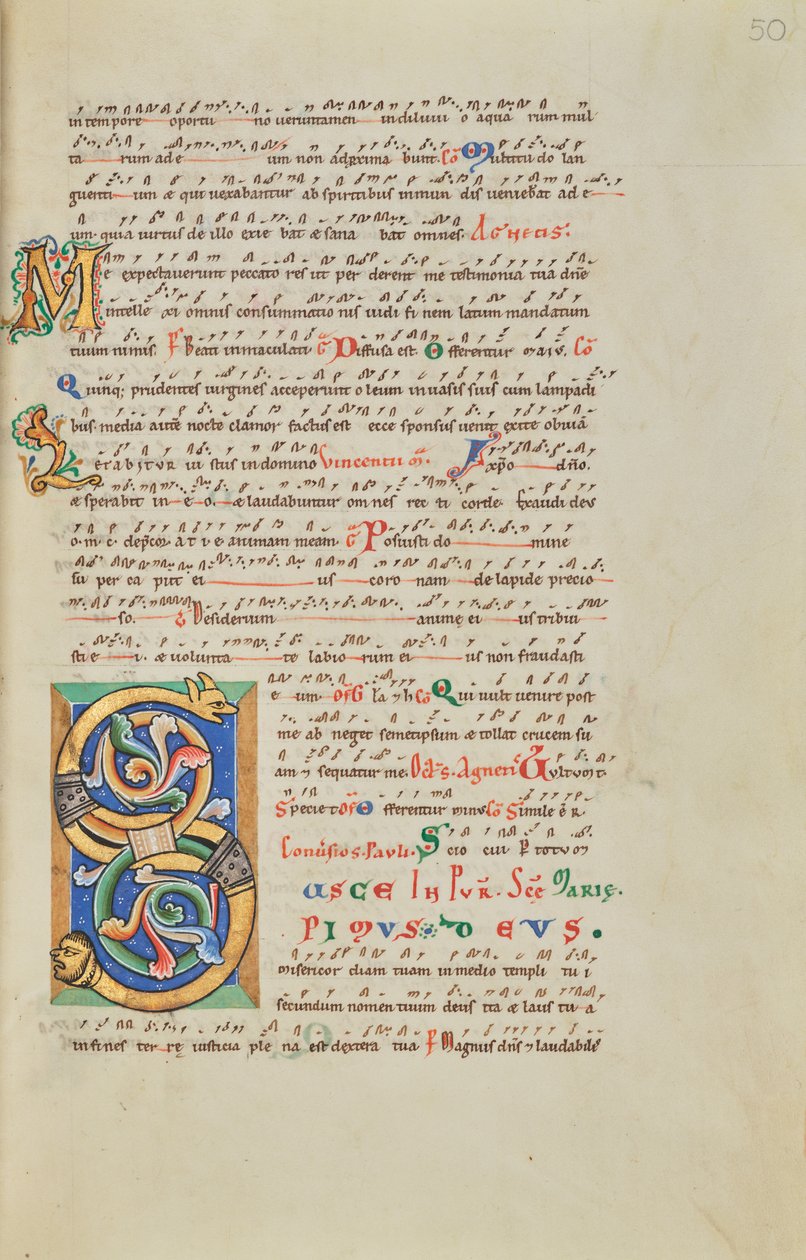 50
in tempore oportuno veruntamen in diluvio aquarum mul
tarum ad eum non adproximabunt. Co Multitudo lan
guentium & qui vexabantur ab spiritibus inmundis veniebant ad e
um. quia virtus de illo exiebat & sanabat omnes. Agnetis.
Me expectaverunt peccatores ut perderent me testimonia tua dñe
intellexi omnis consummationis vidi finem latum mandatum
tuum nimis. Ps Beati inmaculati G Diffusa est. Offerentur maiŕ. Co
Quinq; prudentes virgines acceperunt oleum in vasis suis cum lampadi
bus media autē nocte clamor factus est ecce sponsus venit exite obviā
Letabitur iustus in domino Vincentii m. xp̄o dño.
& sperabit in eo. & laudabuntur omnes recti corde. Exaudi deus
o. m. c. dep̄cor a t i e animam meam. G Posuisti domine
sup caput eius coronam de lapide precio
so. V Desiderium animę eius tribui
sti ei. & voluntate labiorum eius non fraudasti
eum. Off Gła & h Co Qui vult venire post
me abneget semetipsum & tollat crucem su
am & sequatur me. Octās. Agnetis Vultum t.
Specie t Off Offerentur minus Co Simile ē R.
Conversio S. Pauli. Scio cui P totum
usce In Pur. Scē Marię.
pimus deus.
misericordiam tuam in medio templi tui
secundum nomen tuum deus ita & laus tua
in fines terrę iusticia plena est dextera tua P Magnus dñs & laudabilis